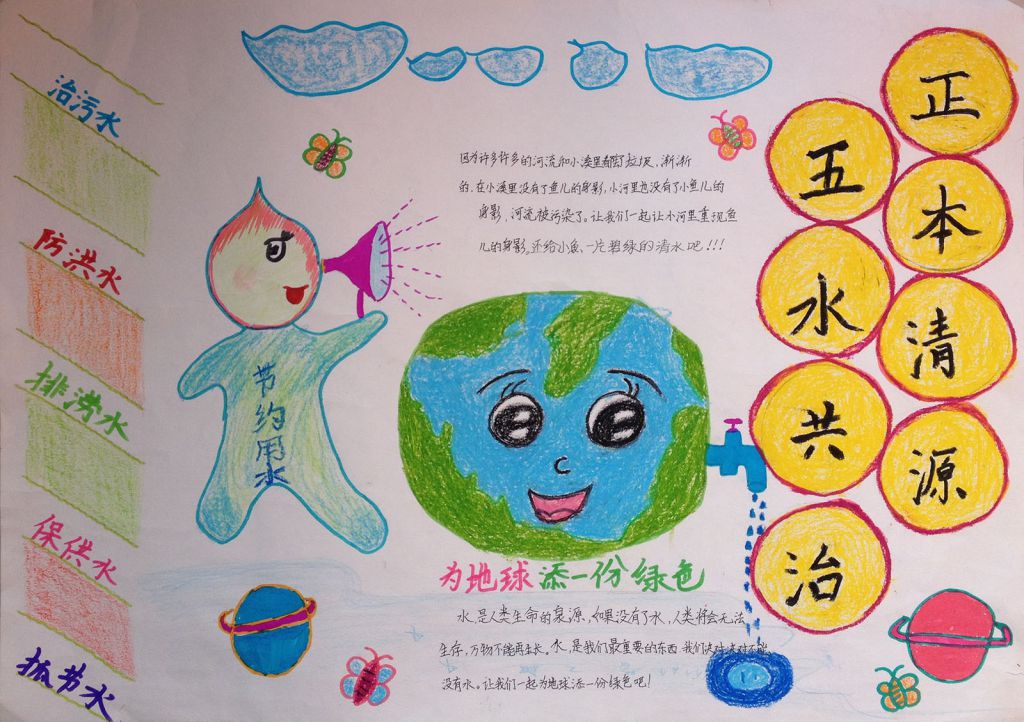 治污水
防洪水
排涝水
保供水
抓节水
节约用水
因为许多许多的河流和小溪里都有垃圾,渐渐
的,在小溪里没有了鱼儿的身影,小河里也没有了小鱼儿的
身影,河流被污染了。让我们一起让小河里重现鱼
儿的身影。还给小鱼、一片碧绿的清水吧!!!
为地球添一份绿色
水是人类生命的泉源,如果没有了水,人类将会无法
生存,万物不能再生长。水,是我们最重要的东西 我们决对决对不能
没有水。让我们一起为地球添一份绿色吧!
五水共治
正本清源